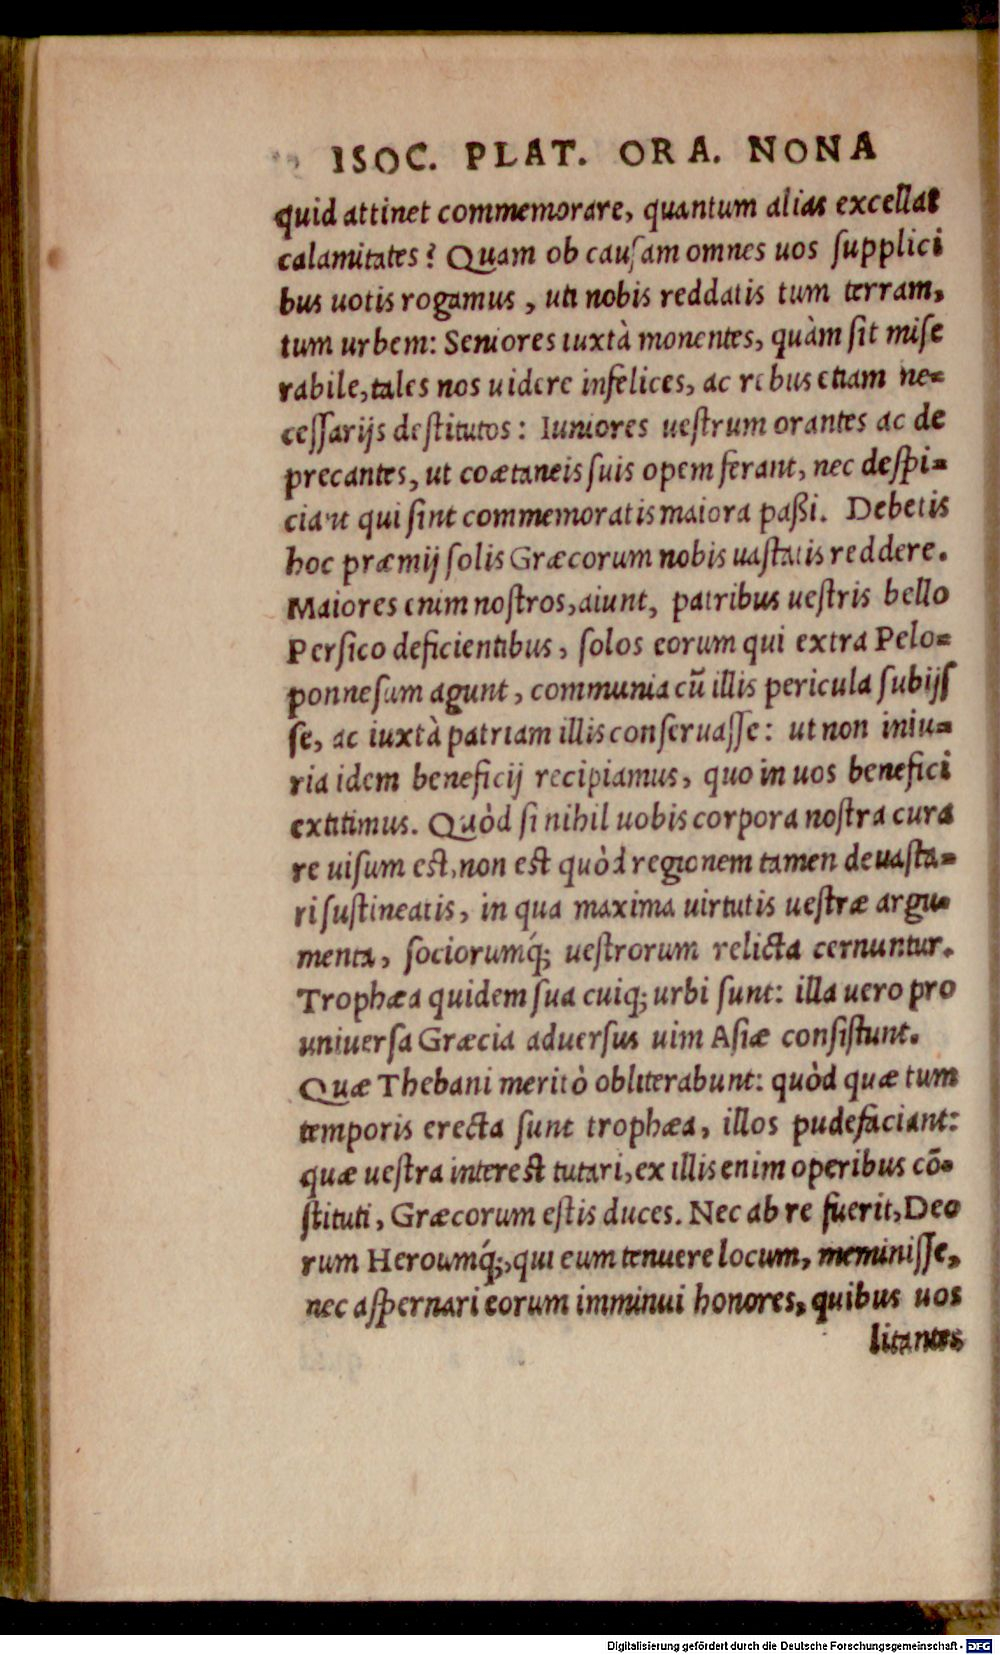 ISOC. PLAT. ORA. NONA
quid attinet commemorare, quantum alias excellat
calamitates? Quam ob cauſam omnes uos ſupplici
bus uotis rogamus, uti nobis reddatis tum terram,
tum urbem: Seniores iuxtà monentes, quàm ſit miſe
rabile, tales nos uidere infelices, ac rebus etiam ne-
ceſſarijs deſtitutos: Iuniores ueſtrum orantes ac de
precantes, ut coætaneis ſuis opem ferant, nec deſpi-
ciant qui ſint commemoratis maiora paßi. Debetis
hoc præmij ſolis Græcorum nobis uaſtatis reddere.
Maiores enim noſtros, aiunt, patribus ueſtris bello
Perſico deficientibus, ſolos eorum qui extra Pelo-
ponneſum agunt, communia cū illis pericula ſubijſ
ſe, ac iuxtà patriam illis conſeruaſſe: ut non iniu-
ria idem beneficij recipiamus, quo in uos benefici
extitimus. Quòd ſi nihil uobis corpora noſtra cura
re uiſum eſt, non eſt quòd regionem tamen deuaſta-
ri ſuſtineatis, in qua maxima uirtutis ueſtræ argu-
menta, ſociorumq́; ueſtrorum relicta cernuntur.
Trophæa quidem ſua cuiq; urbi ſunt: illa uero pro
uniuerſa Græcia aduerſus uim Aſiæ conſiſtunt.
Quæ Thebani meritò obliterabunt: quòd quæ tum
temporis erecta ſunt trophæa, illos pudefaciant:
quæ ueſtra intereſt tutari, ex illis enim operibus cō-
ſtituti, Græcorum eſtis duces. Nec ab re fuerit, Deo
rum Heroumq́;, qui eum tenuere locum, meminiſſe,
nec aſpernari eorum imminui honores, quibus uos
litantes
Digitalisierung gefördert durch die Deutsche Forschungsgemeinschaft - DFG